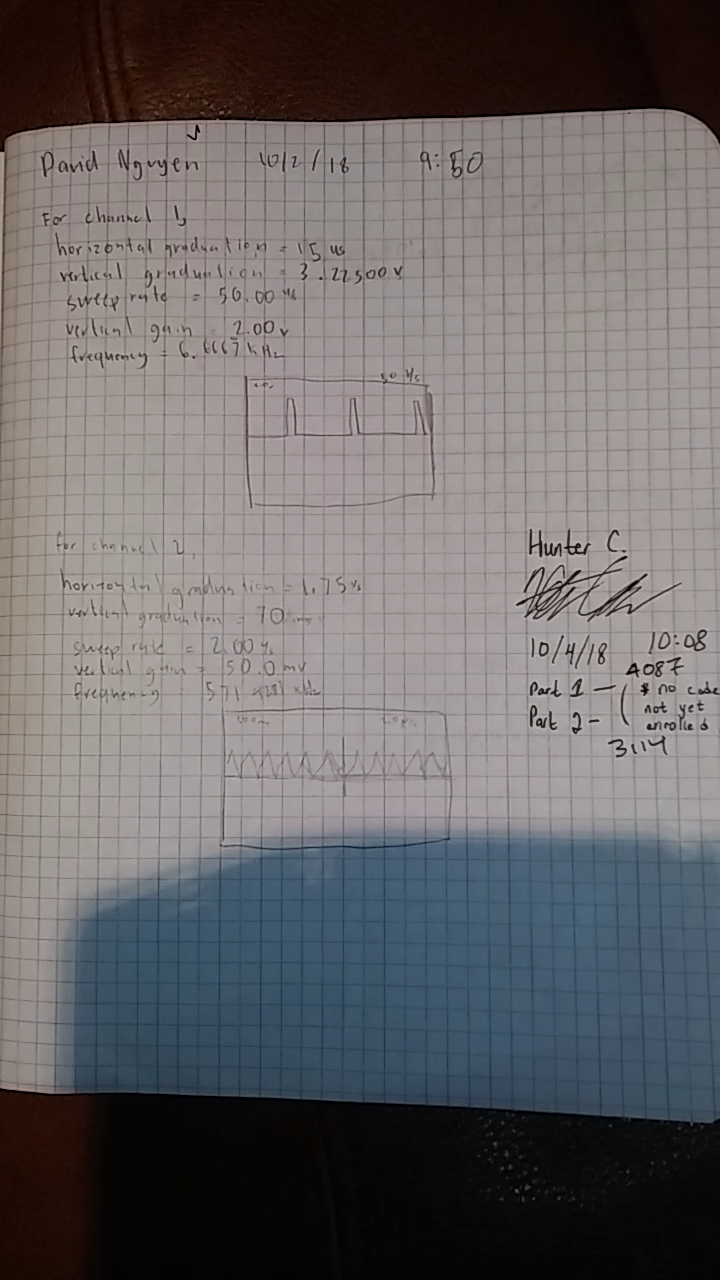 David Nguyen 10/2/18 9:50
For channel 1,
horizontal graduation = 15 us
vertical graduation = 3.22500 v
sweep rate = 50.00
vertical gain = 2.00v
frequency = 6.6667 kHz
for channel 2,
horizontal graduation = 1.75
vertical graduation = 70
sweep rate = 2.00
vertical gain = 50.0 mv
frequency = kHz
Hunter C.
10/4/18 10:08
4087
Part 1 — ( * no code
not yet
Part 2 - enrolled
3114